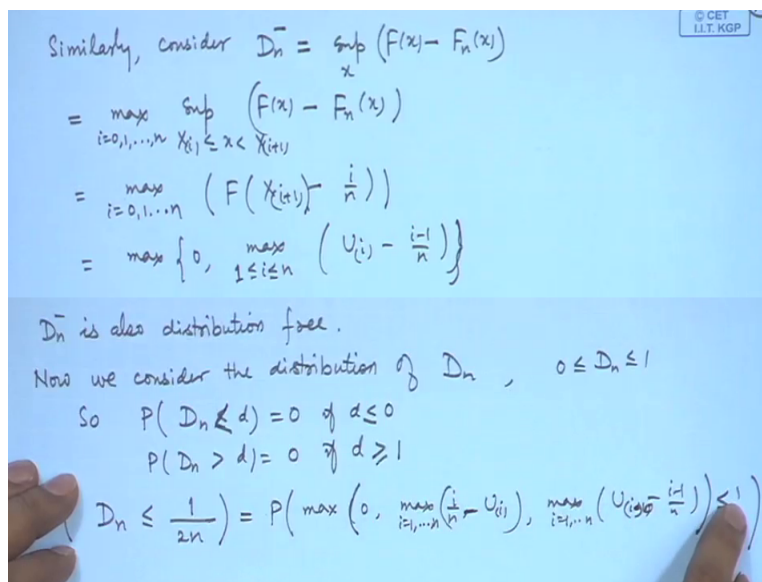 © CET
I.I.T. KGP
Similarly, consider Dn⁻ = sup_x (F(x) - Fn(x))
= max_{i=0,1,...,n} sup_{X(i) ≤ x < X(i+1)} (F(x) - Fn(x))
= max_{i=0,1,...n} (F(X(i+1)) - i/n))
= max {0, max_{1≤i≤n} (U(i) - (i-1)/n)}
Dn⁻ is also distribution free.
Now we consider the distribution of Dn, 0 ≤ Dn ≤ 1
So P(Dn < d) = 0 if d ≤ 0
P(Dn > d) = 0 if d ≥ 1
( Dn ≤ 1/2n ) = P( max (0, max_{i=1,...n} (i/n - U(i)), max_{i=1,...n} (U(i) - (i-1)/n)) ≤ 1 )